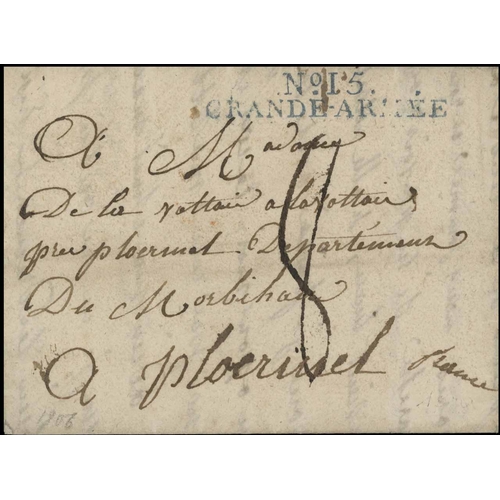 No. 15.
GRANDE-ARMÉE
A Madame
De la vottais a lavottais
pres ploermel Departement
Du Morbihan
8
A ploermel france
1806